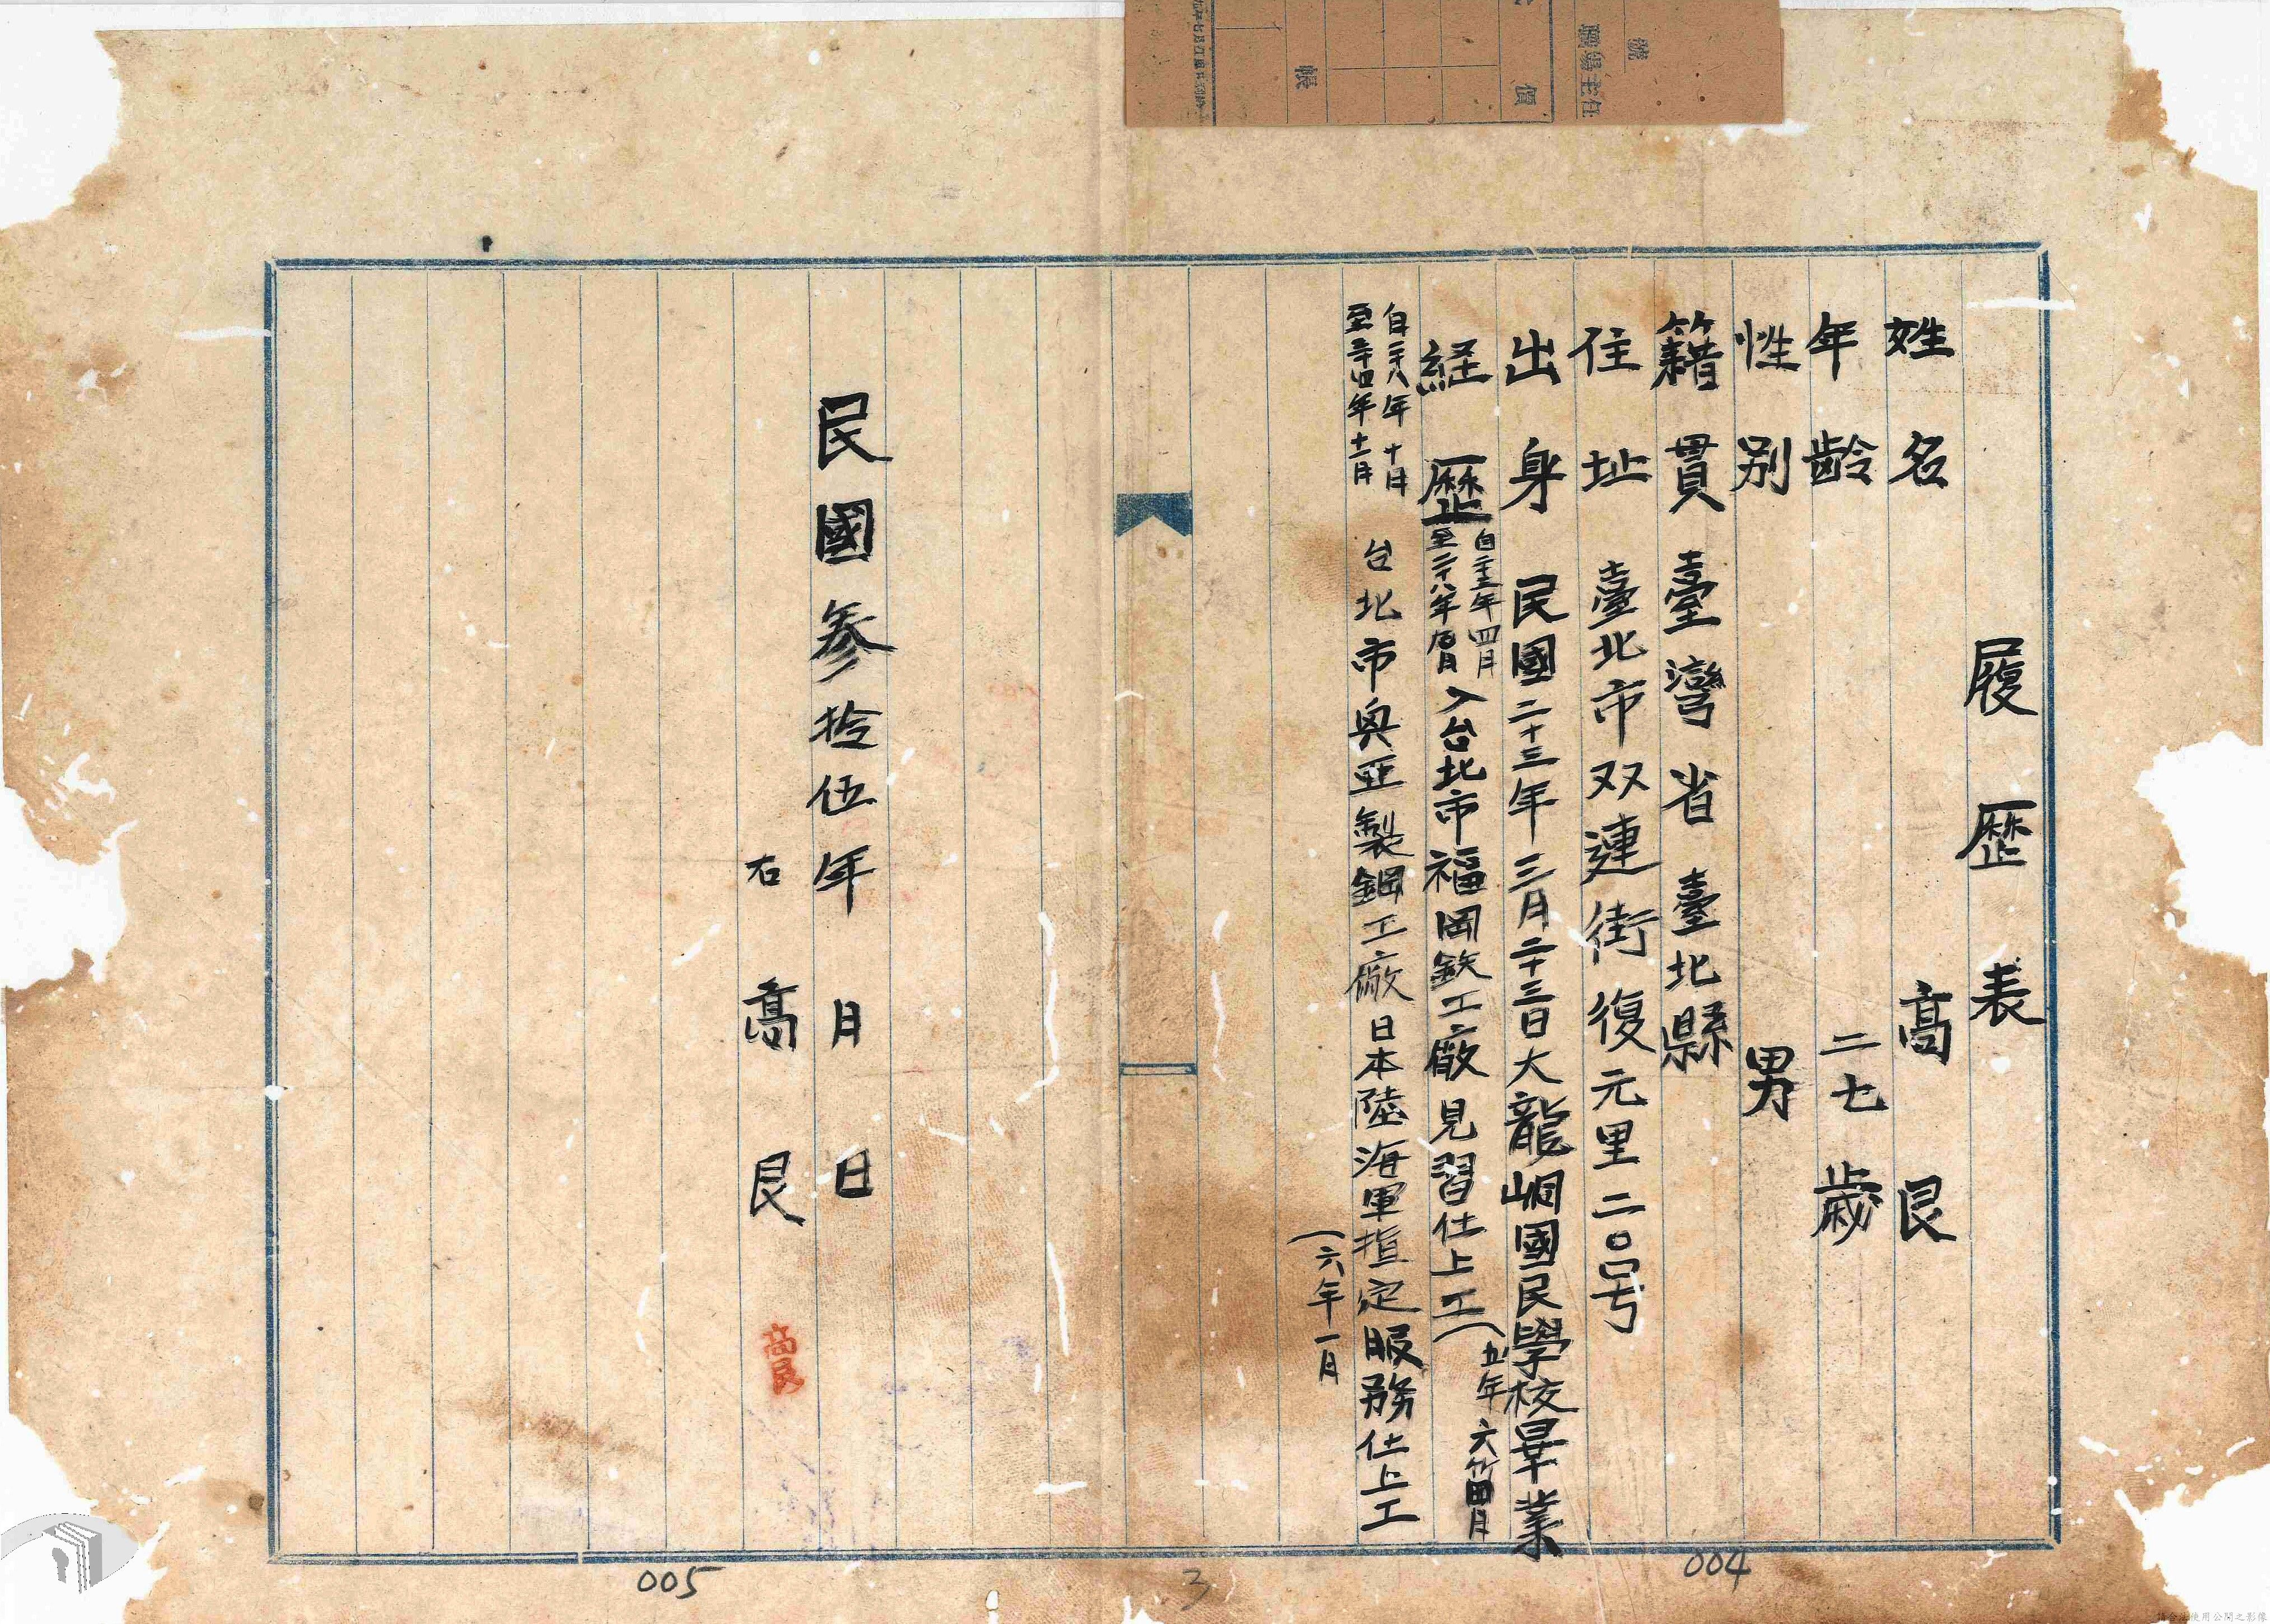 履歷表
姓名 高艮
年齡 二七歲
性別 男
籍貫 臺灣省臺北縣
住址 臺北市双連街復元里二〇号
出身 民國二十三年三月二十三日大龍峒國民學校畢業
経歷 自二十三年四月
至二十八年 月
入台北市福岡鉄工廠見習仕上工(五年六箇月
自二十八年十月
至三十四年十一月
台北市興亞製鋼工廠日本陸海軍指定服務仕上工
(六年一月
民國參拾伍年 月 日
右 高艮
高艮
004
3
005
號
職場主任
價
帳